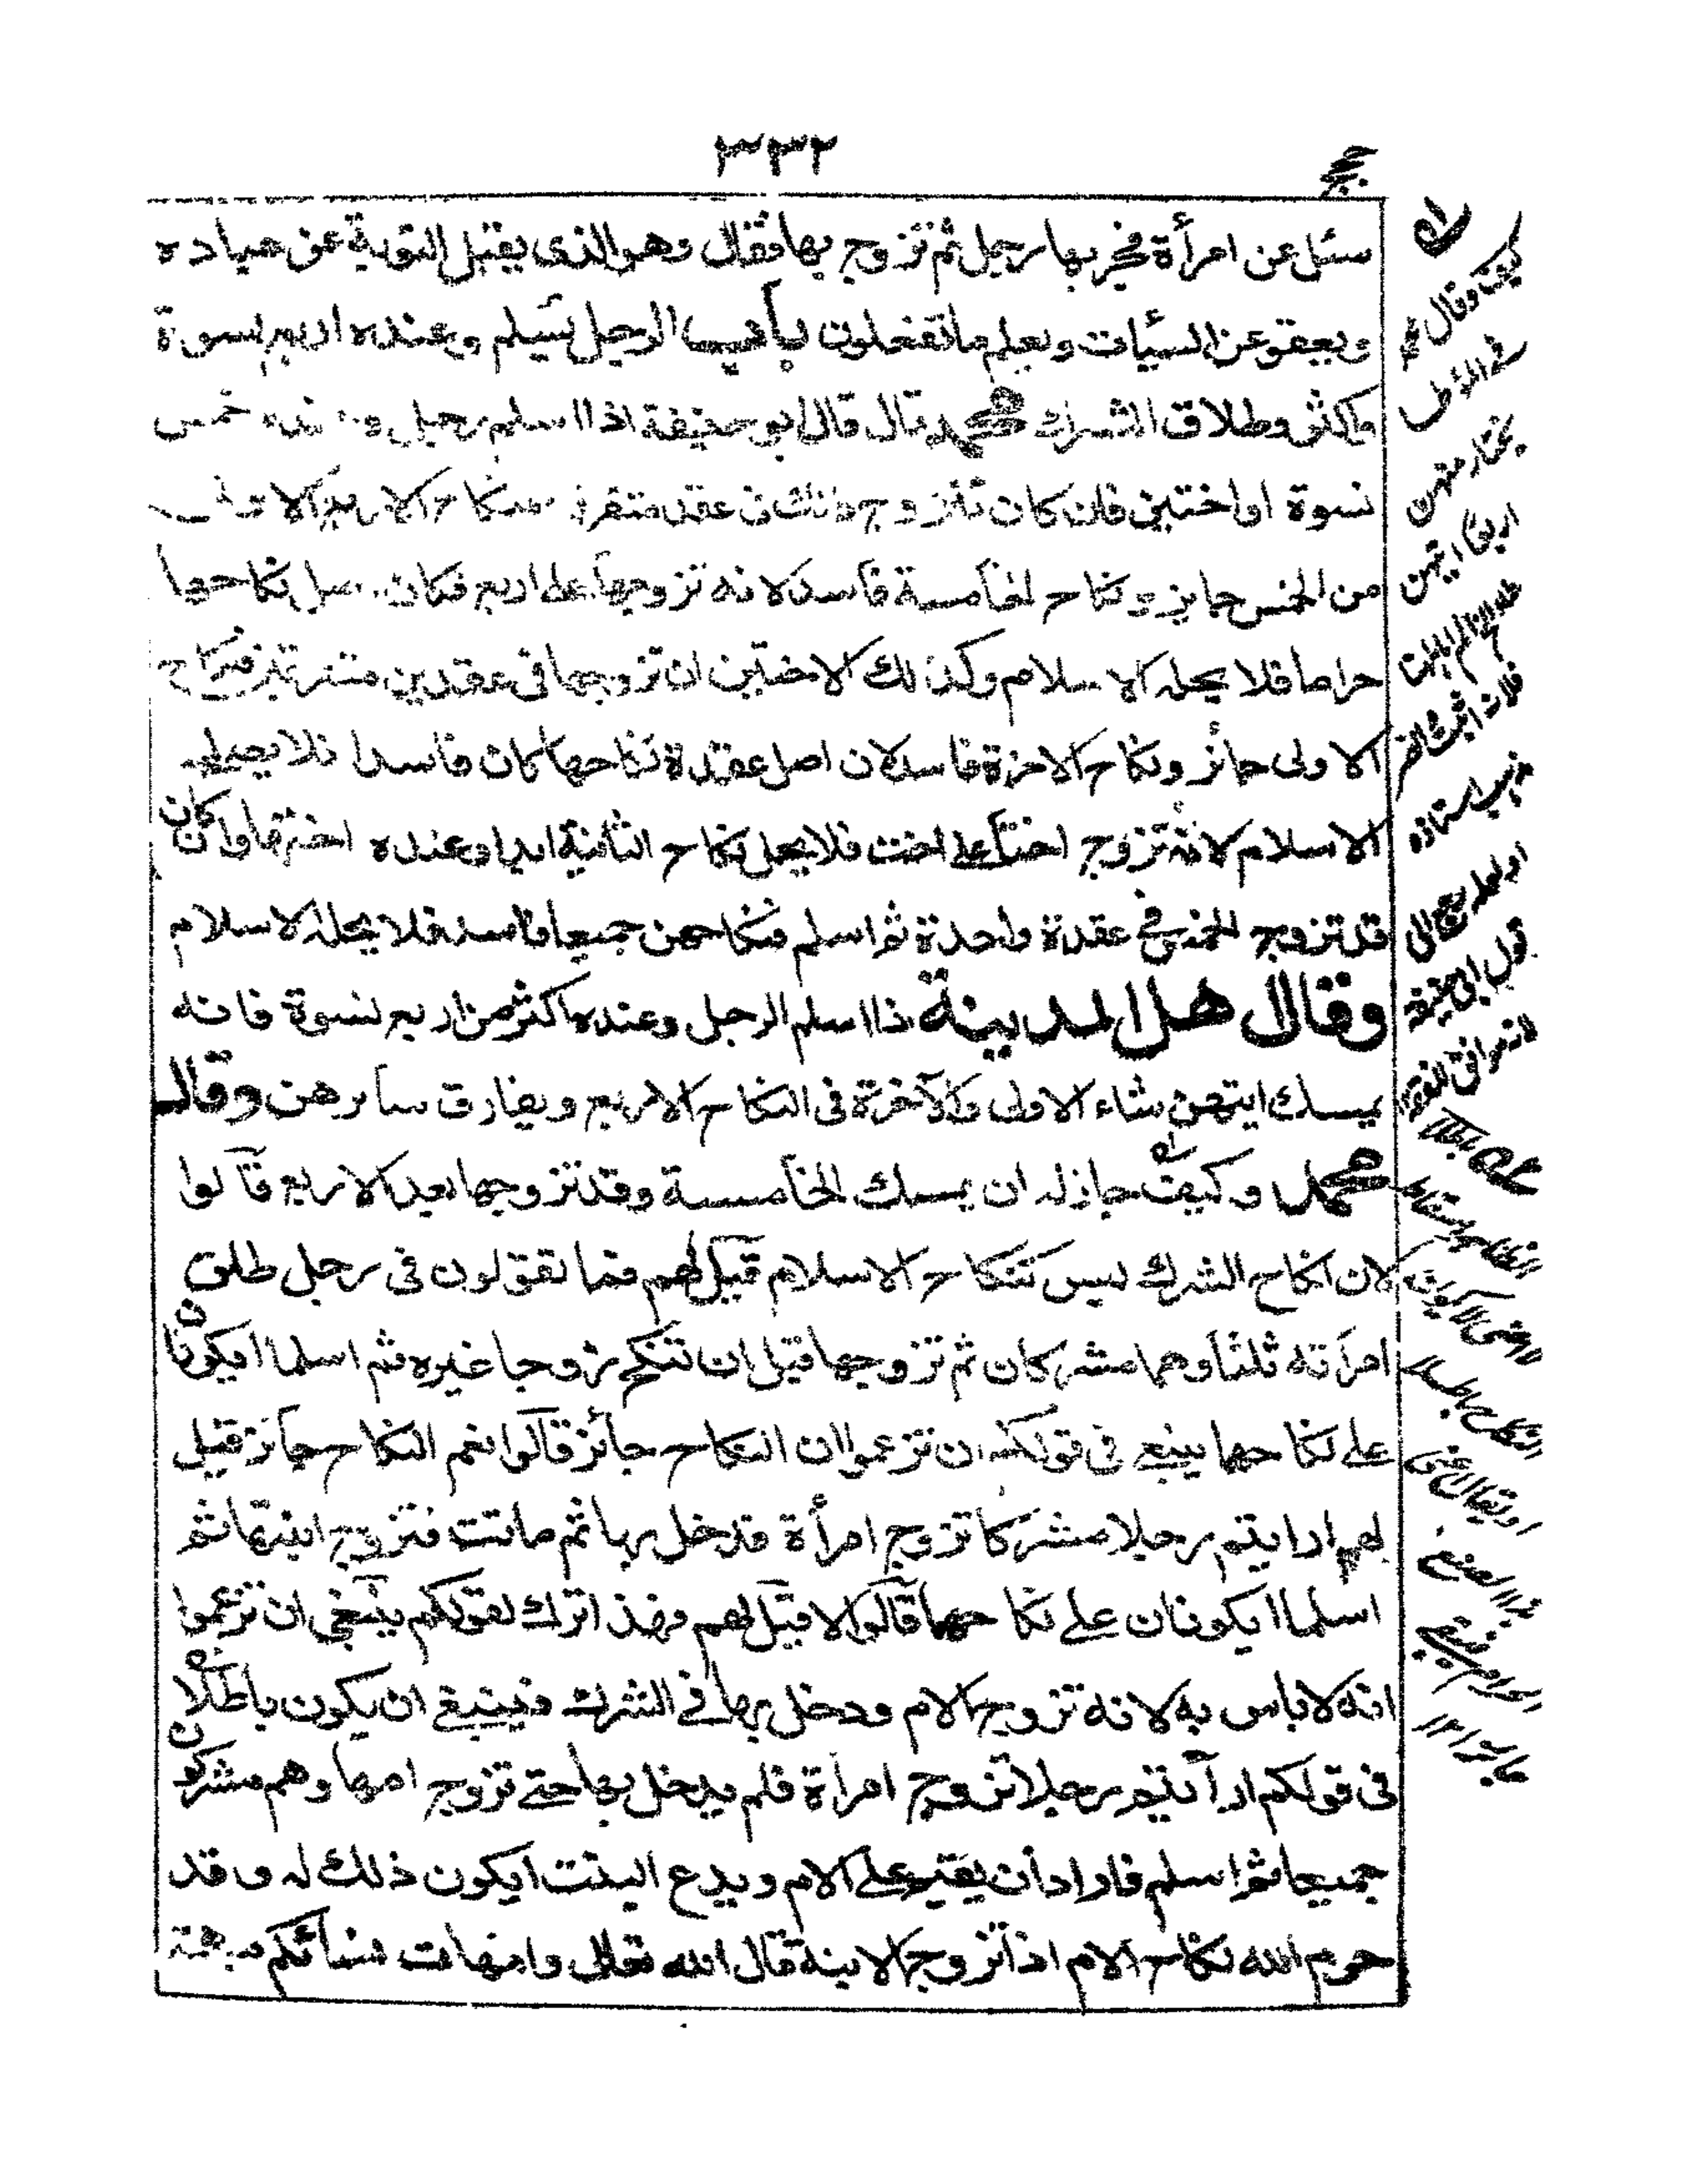 ٣٣٢
حج
سئل عن امرأة فجر بها رجل ثم تزوج بها فقال وهو الذى يقبل التوبة عن عباده
ويعفو عن السيئات ويعلم ما تفعلون باب الرجل يسلم وعنده اربع نسوة
واكثر وطلاق الشرك محمد قال قال ابو حنيفة اذا اسلم رجل وعنده خمس
نسوة او اختين فان كان تزوج فى عقد متفرقة نكاح الاربع الاول
من الخمس جايز ونكاح الخامسة فاسد لانه تزوجها على اربع فكان اصل نكاحها
حراما فلا يحله الاسلام وكذلك الاختين ان تزوجهما فى عقدين متفرقين فنكاح
الاولى جائز ونكاح الاخرة فاسد لان اصل عقدة نكاحها كان فاسدا فلا يحله
الاسلام لانه تزوج اختا على اخت فلا يحل نكاح الثانية ابدا وعنده اختها وان كان
قد تزوج الخمس فى عقدة واحدة ثم اسلم فنكاحهن جميعا فاسد فلا يحله الاسلام
وقال اهل المدينة اذا اسلم الرجل وعنده اكثر من اربع نسوة فانه
يمسك ايتهن شاء الاولى والآخرة فى النكاح الاربع ويفارق سايرهن وقال
محمد وكيف جاز له ان يمسك الخامسة وقد تزوجها بعد الاربع قالوا
لان نكاح الشرك ليس كنكاح الاسلام قيل لهم فما تقولون فى رجل طلق
امرأته ثلثا وهما مشركان ثم تزوجها قبل ان تنكح زوجا غيره ثم اسلما ايكونان
على نكاحهما ينبغى فى قولكم ان تزعموا ان النكاح جائز قالوا نعم النكاح جائز قيل
لهم ارايتم رجلا مشركا تزوج امرأة قد دخل بها ثم ماتت فتزوج ابنتها ثم
اسلما ايكونان على نكاحهما قالوا لا قيل لهم فهذا ترك لقولكم ينبغى ان تزعموا
انه لا باس به لانه تزوج الام ودخل بها فى الشرك فينبغى ان يكون باطلا
فى قولكم ارأيتم رجلا تزوج امرأة فلم يدخل بها حتى تزوج امها وهم مشركون
جميعا ثم اسلم فاراد أن يقيم على الام ويدع البنت ايكون ذلك له وقد
حرم الله نكاح الام اذا تزوج الابنة قال الله تعالى وامهات نسائكم مبهمة
كيف وقال محمد
فى المؤطا
يختار منهن
اربعا ايتهن